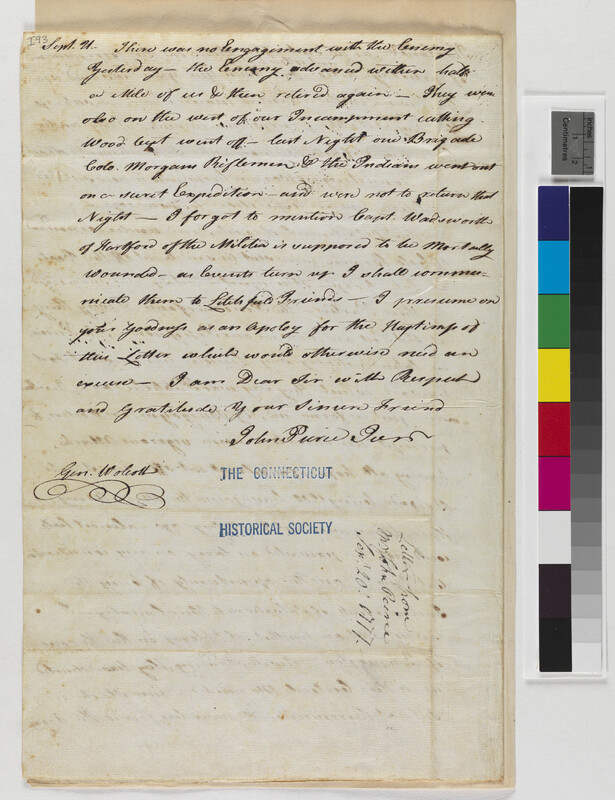 I93
Sept. 21. There was no Engagement with the Enemy
Yesterday — the Enemy advanced within half
a Mile of us & then retired again — They were
also on the west of our Incampment cutting
Wood but went off — last Night our Brigade
Colo. Morgans Riflemen & the Indians went out
on a secret Expedition — and were not to return that
Night — I forgot to mention Capt. Wadsworth
of Hartford of the Militia is supposed to be Mortally
wounded — as Events turn up I shall commu-
nicate them to Litchfield Friends — I presume on
your Goodness as an Apology for the Hastiness of
this Letter which would otherwise need an
excuse — I am Dear Sir with Respect
and Gratitude Your Sincere Friend
John Pierce Junr
Gen. Wolcott
THE CONNECTICUT
HISTORICAL SOCIETY
Letter from
Mr John Peirce
Sepr 20th 1777.
Centimetres
Inches